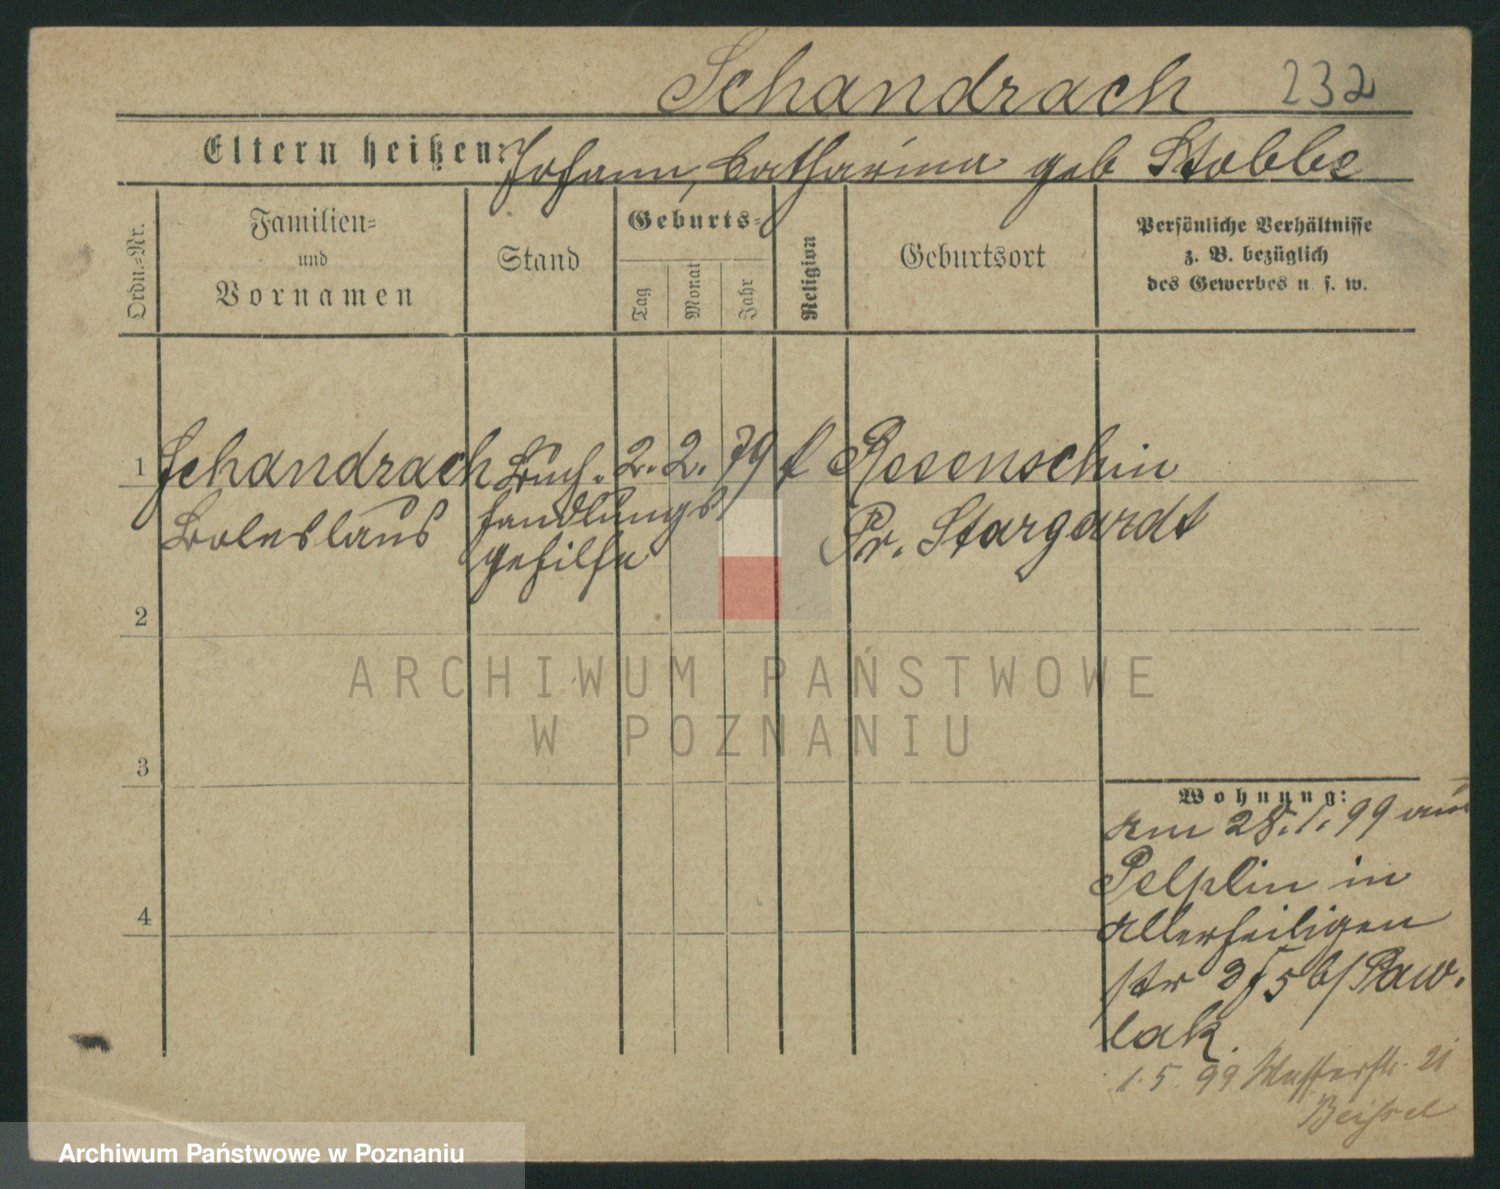 Schandrach 232
Eltern heißen: Johann, Catharina geb Stobbe
Ordn.=Nr.
Familien=
und
Vornamen
Stand
Geburts=
Tag
Monat
Jahr
Religion
Geburtsort
Persönliche Verhältnisse
z. B. bezüglich
des Gewerbes u. s. w.
1 Schandrach Buch- 2. 2. 79 k Resenschin
Boleslaus handlungs Pr. Stargardt
gehilfe
2
3
4
Wohnung:
Am 28. 1. 99 aus
Pelplin in
Allerheiligen
str 3/5 b/ Paw-
lak.
1. 5. 99 Wasserstr. 21
ARCHIWUM PAŃSTWOWE
W POZNANIU
Archiwum Państwowe w Poznaniu